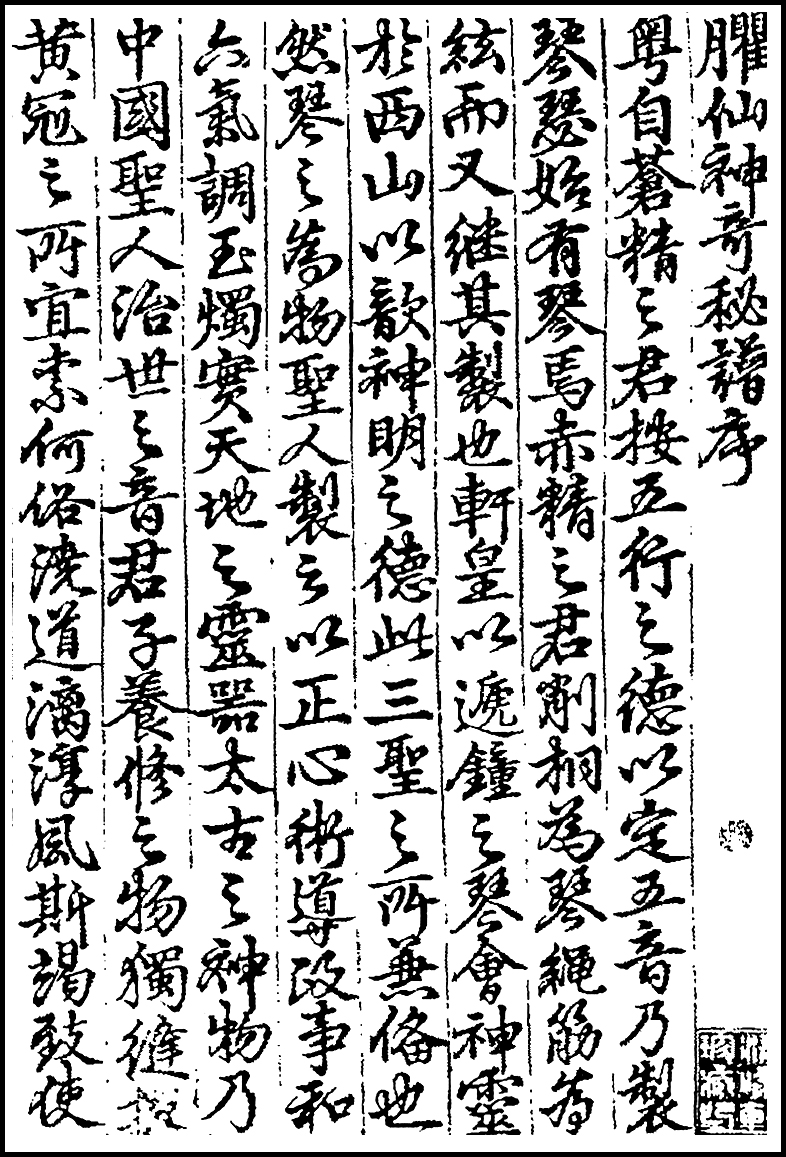 臞仙神奇秘譜序
粤自蒼精之君按五行之德以定五音乃製
琴瑟始有琴焉赤精之君削桐為琴繩筋為
絃而又継其製也軒皇以遞鐘之琴會神靈
於西山以歆神明之德此三聖之所兼俻也
然琴之為物聖人製之以正心術導政事和
六氣調玉燭實天地之靈噐太古之神物乃
中國聖人治世之音君子養修之物獨縫掖
黄冠之所宜素何俗澆道漓淳風斯竭致使